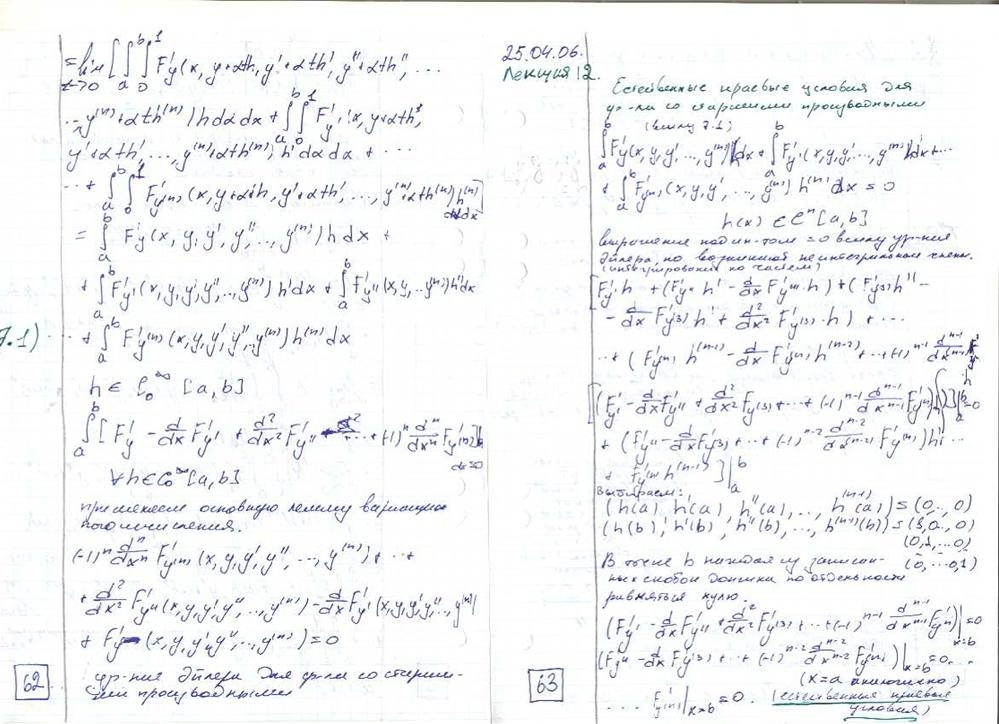 = lim_{t→0} [ ∫_a^b ∫_0^1 F'_y (x, y+αth, y'+αth', y''+αth'', ...
..., y^(n)+αth^(n)) h dα dx + ∫_a^b ∫_0^1 F'_y' (x, y+αth,
y'+αth', ..., y^(n)+αth^(n)) h' dα dx + ...
... + ∫_a^b ∫_0^1 F'_y^(n) (x, y+αth, y'+αth', ..., y^(n)+αth^(n)) h^(n)] dα dx
= ∫_a^b F'_y (x, y, y', y'', ..., y^(n)) h dx +
+ ∫_a^b F'_y' (x, y, y', y'', ..., y^(n)) h' dx + ∫_a^b F'_y'' (x, y, ..., y^(n)) h'' dx
7.1) ... + ∫_a^b F'_y^(n) (x, y, y', y'', ..., y^(n)) h^(n) dx
h ∈ C_0^∞ [a, b]
∫_a^b [F'_y - d/dx F'_y' + d²/dx² F'_y'' + ... + (-1)^n d^n/dx^n F'_y^(n)] h dx = 0
∀h ∈ C_0^∞ [a, b]
применяем основную лемму вариацион
ного исчисления.
(-1)^n d^n/dx^n F'_y^(n) (x, y, y', y'', ..., y^(n)) + ...
+ d²/dx² F'_y'' (x, y, y', y'', ..., y^(n)) - d/dx F'_y' (x, y, y', y'', ..., y^(n))
+ F'_y (x, y, y', y'', ..., y^(n)) = 0
ур-ние Эйлера для ф-ла со старши-
ми производными
62
25.04.06.
Лекция 12.
Естественные краевые условия для
ф-ла со старшими производными
(ввиду 7.1)
∫_a^b F'_y (x, y, y', ..., y^(n)) h dx + ∫_a^b F'_y' (x, y, y', ..., y^(n)) h' dx + ...
+ ∫_a^b F'_y^(n) (x, y, y', ..., y^(n)) h^(n) dx = 0
h(x) ∈ C^n [a, b]
выражение под ин-лом = 0 ввиду ур-ния
Эйлера, но возникают неинтегральные члены.
(интегрирование по частям)
[F'_y' h + (F'_y'' h' - d/dx F'_y'' h) + (F'_y(3) h'' -
- d/dx F'_y(3) h' + d²/dx² F'_y(3) h) + ...
... + (F'_y^(n) h^(n-1) - d/dx F'_y^(n) h^(n-2) + ... + (-1)^(n-1) d^(n-1)/dx^(n-1) F'_y^(n) h)] |_a^b = 0
[(F'_y' - d/dx F'_y'' + d²/dx² F'_y(3) + ... + (-1)^(n-1) d^(n-1)/dx^(n-1) F'_y^(n)) h
+ (F'_y'' - d/dx F'_y(3) + ... + (-1)^(n-2) d^(n-2)/dx^(n-2) F'_y^(n)) h' ...
+ F'_y^(n) h^(n-1)] |_a^b
выбираем:
(h(a), h'(a), h''(a), ..., h^(n-1)(a)) = (0, ..., 0)
(h(b), h'(b), h''(b), ..., h^(n-1)(b)) = (1, 0, ..., 0)
(0, 1, ..., 0)
(0, ..., 0, 1)
В точке b каждая из записан-
ных скобок должна по отдельности
равняться нулю.
(F'_y' - d/dx F'_y'' + d²/dx² F'_y(3) + ... + (-1)^(n-1) d^(n-1)/dx^(n-1) F'_y^(n)) |_{x=b} = 0
(F'_y'' - d/dx F'_y(3) + ... + (-1)^(n-2) d^(n-2)/dx^(n-2) F'_y^(n)) |_{x=b} = 0 ...
(x=a аналогично)
... F'_y^(n) |_{x=b} = 0. (естественные краевые
условия)
63